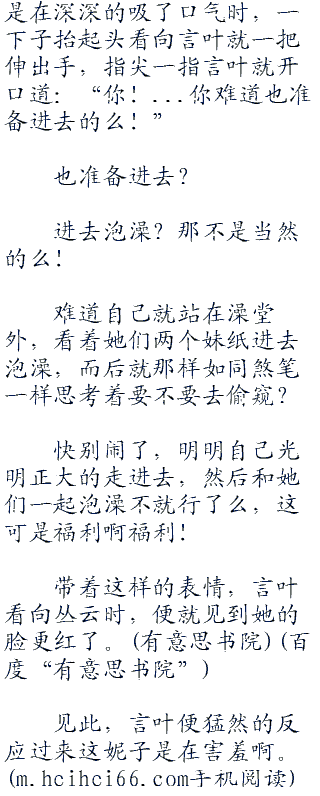 是在深深的吸了口气时，一
下子抬起头看向言叶就一把
伸出手，指尖一指言叶就开
口道：“你！...你难道也准
备进去的么！”
也准备进去？
进去泡澡？那不是当然
的么！
难道自己就站在澡堂
外，看着她们两个妹纸进去
泡澡，而后就那样如同煞笔
一样思考着要不要去偷窥？
快别闹了，明明自己光
明正大的走进去，然后和她
们一起泡澡不就行了么，这
可是福利啊福利！
带着这样的表情，言叶
看向丛云时，便就见到她的
脸更红了。(有意思书院)(百
度“有意思书院”)
见此，言叶便猛然的反
应过来这妮子是在害羞啊。
(m.hcihci66.com手机阅读)